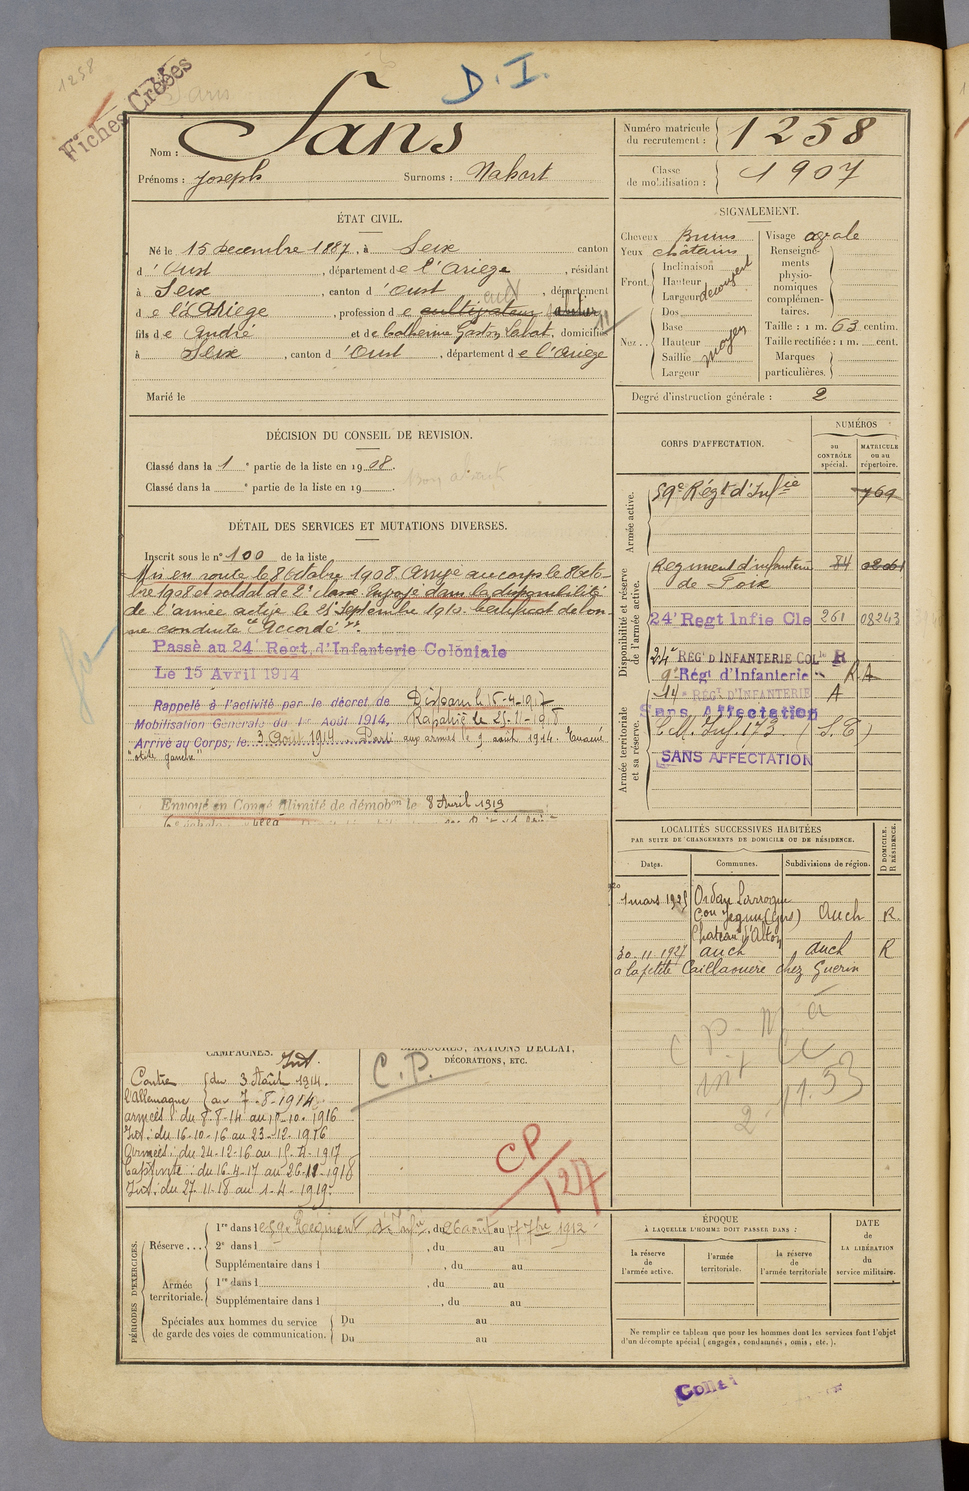 1258
Fiches Créées
D. I.
Nom : Sans
Prénoms : Joseph Surnoms : Nabort
Numéro matricule du recrutement : 1258
Classe de mobilisation : 1907
ÉTAT CIVIL.
Né le 15 Decembre 1887, à Seix canton
d'Oust, département de l'Ariege, résidant
à Seix, canton d'Oust, département
de l'Ariege, profession de cultivateur
fils de André et de Catherine Gaston Labat, domicilié
à Seix, canton d'Oust, département de l'Ariege
Marié le
SIGNALEMENT.
Cheveux Bruns
Yeux châtains
Front. Inclinaison
Hauteur
Largeur decouvert
Nez.. Dos
Base
Hauteur moyen
Saillie
Largeur
Visage ovale
Renseignements physionomiques complémentaires.
Taille : 1 m. 63 centim.
Taille rectifiée : 1 m. cent.
Marques particulières.
Degré d'instruction générale : 2
DÉCISION DU CONSEIL DE REVISION.
Classé dans la 1e partie de la liste en 1908.
Classé dans la e partie de la liste en 19
Bon absent
DÉTAIL DES SERVICES ET MUTATIONS DIVERSES.
Inscrit sous le n° 100 de la liste
Mis en route le 8 Octobre 1908. Arrivé au corps le 8 Octo-
bre 1908 et soldat de 2e classe. Envoyé dans la disponibilité
de l'armée active le 25 Septembre 1910. Certificat de bon-
ne conduite Accordé
Passé au 24e Regt. d'Infanterie Coloniale
Le 15 Avril 1914
Rappelé à l'activité par le décret de Disparu le 15-4-1917
Mobilisation Générale du 1er Août 1914, Rapatrié le 25-11-1918
Arrivé au Corps, le 3 Août 1914. Parti aux armées le 9 août 1914. Evacué
"otite gauche"
Envoyé en Congé illimité de démobon le 8 Avril 1919
CORPS D'AFFECTATION.
NUMÉROS
au CONTRÔLE spécial.
MATRICULE ou au répertoire.
Armée active.
59e Régt d'Infie 769
Disponibilité et réserve de l'armée active.
Regiment d'infanterie de Foix 84
24e Regt Infie Cle 261 08243
24e RÉGT D'INFANTERIE COLle R
9e Régt d'Infanterie R A
14e RÉGT D'INFANTERIE A
Armée territoriale et sa réserve.
Sans Affectation
C. M. Inf. 173. (S. T.)
SANS AFFECTATION
LOCALITÉS SUCCESSIVES HABITÉES
PAR SUITE DE CHANGEMENTS DE DOMICILE OU DE RÉSIDENCE.
Dates. Communes. Subdivisions de région. D DOMICILE. R RÉSIDENCE.
1 mars 1925 Ordan Larroque
Con Jegun (Gers) Auch R.
Chateau d'Alton
30 11 1927 auch auch R
a la petite Caillaouère chez Guerin
CAMPAGNES.
Int.
Contre l'Allemagne
du 3 Août 1914.
au 7-8-1914
armées : du 8-8-14 au 15-10-1916
Int : du 16-10-16 au 23-12-1916
Armées : du 24-12-16 au 15-4-1917
Captivité : du 16-4-17 au 26-11-1918
Int : du 27-11-18 au 1-4-1919.
BLESSURES, ACTIONS D'ÉCLAT,
DÉCORATIONS, ETC.
C.P.
CP/127
PÉRIODES D'EXERCICES.
Réserve... 1re dans le 59e Regiment d'Infie, du 26 août au 17 7bre 1912
2e dans l , du au
Supplémentaire dans l , du au
Armée territoriale. 1re dans l , du au
Supplémentaire dans l , du au
Spéciales aux hommes du service de garde des voies de communication. Du au
Du au
ÉPOQUE
À LAQUELLE L'HOMME DOIT PASSER DANS :
la réserve de l'armée active.
l'armée territoriale.
la réserve de l'armée territoriale
DATE de LA LIBÉRATION du service militaire.
Ne remplir ce tableau que pour les hommes dont les services font l'objet
d'un décompte spécial (engagés, condamnés, omis, etc.).